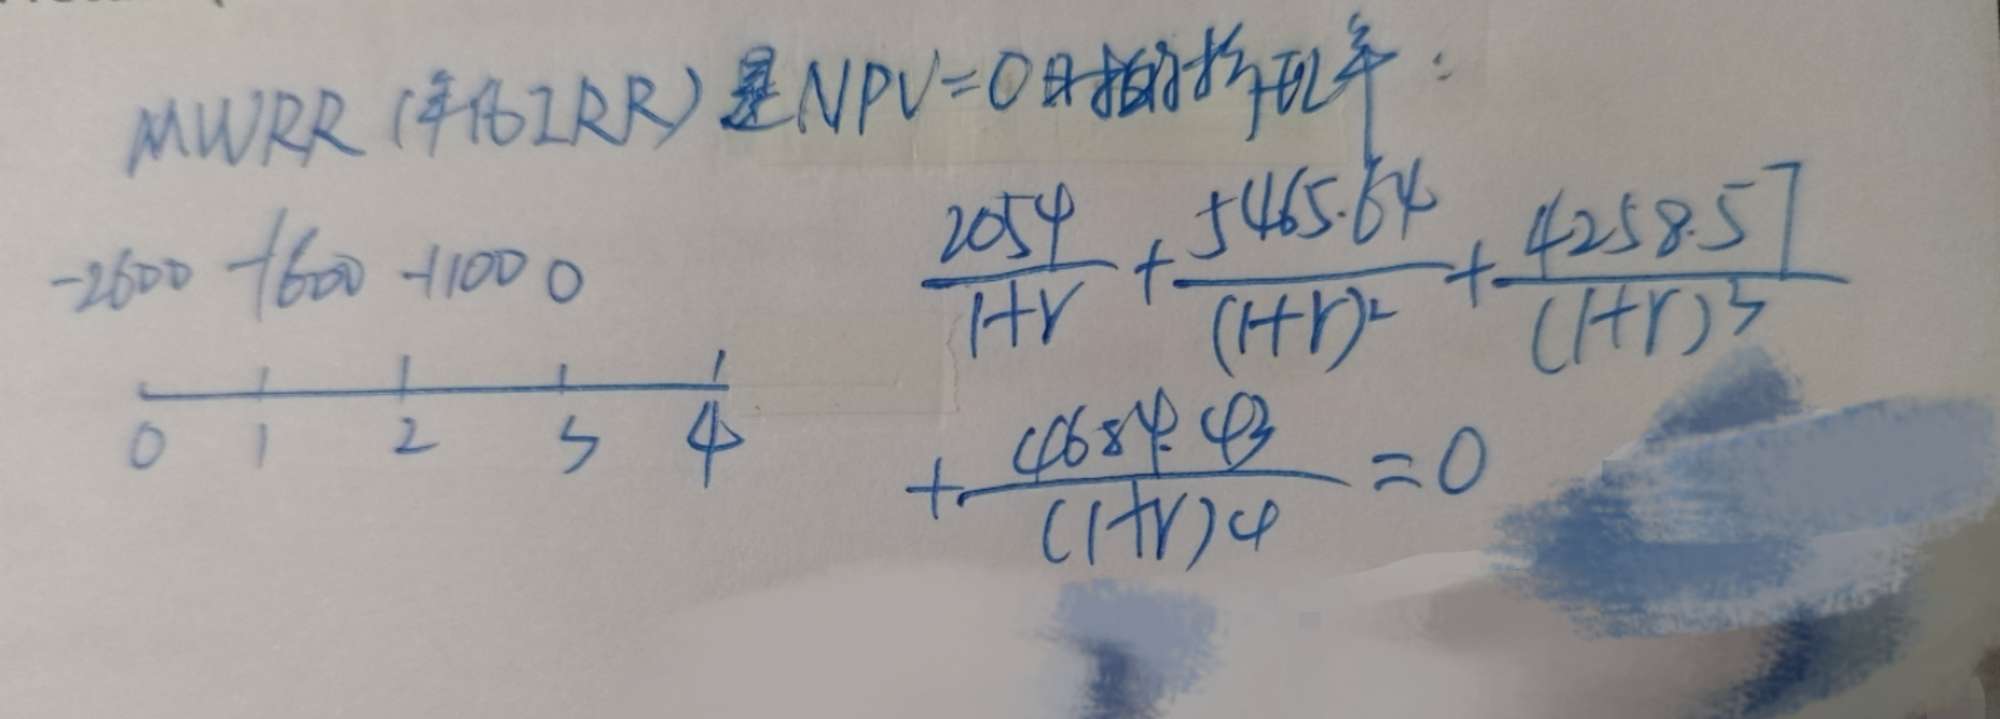 MWRR (年化IRR) 是NPV=0时的折现率:
-2600 -1600 -1100 0
0 1 2 3 4
2054/(1+r) + 5465.64/(1+r)² + 4258.57/(1+r)³
+ 4684.43/(1+r)4 = 0